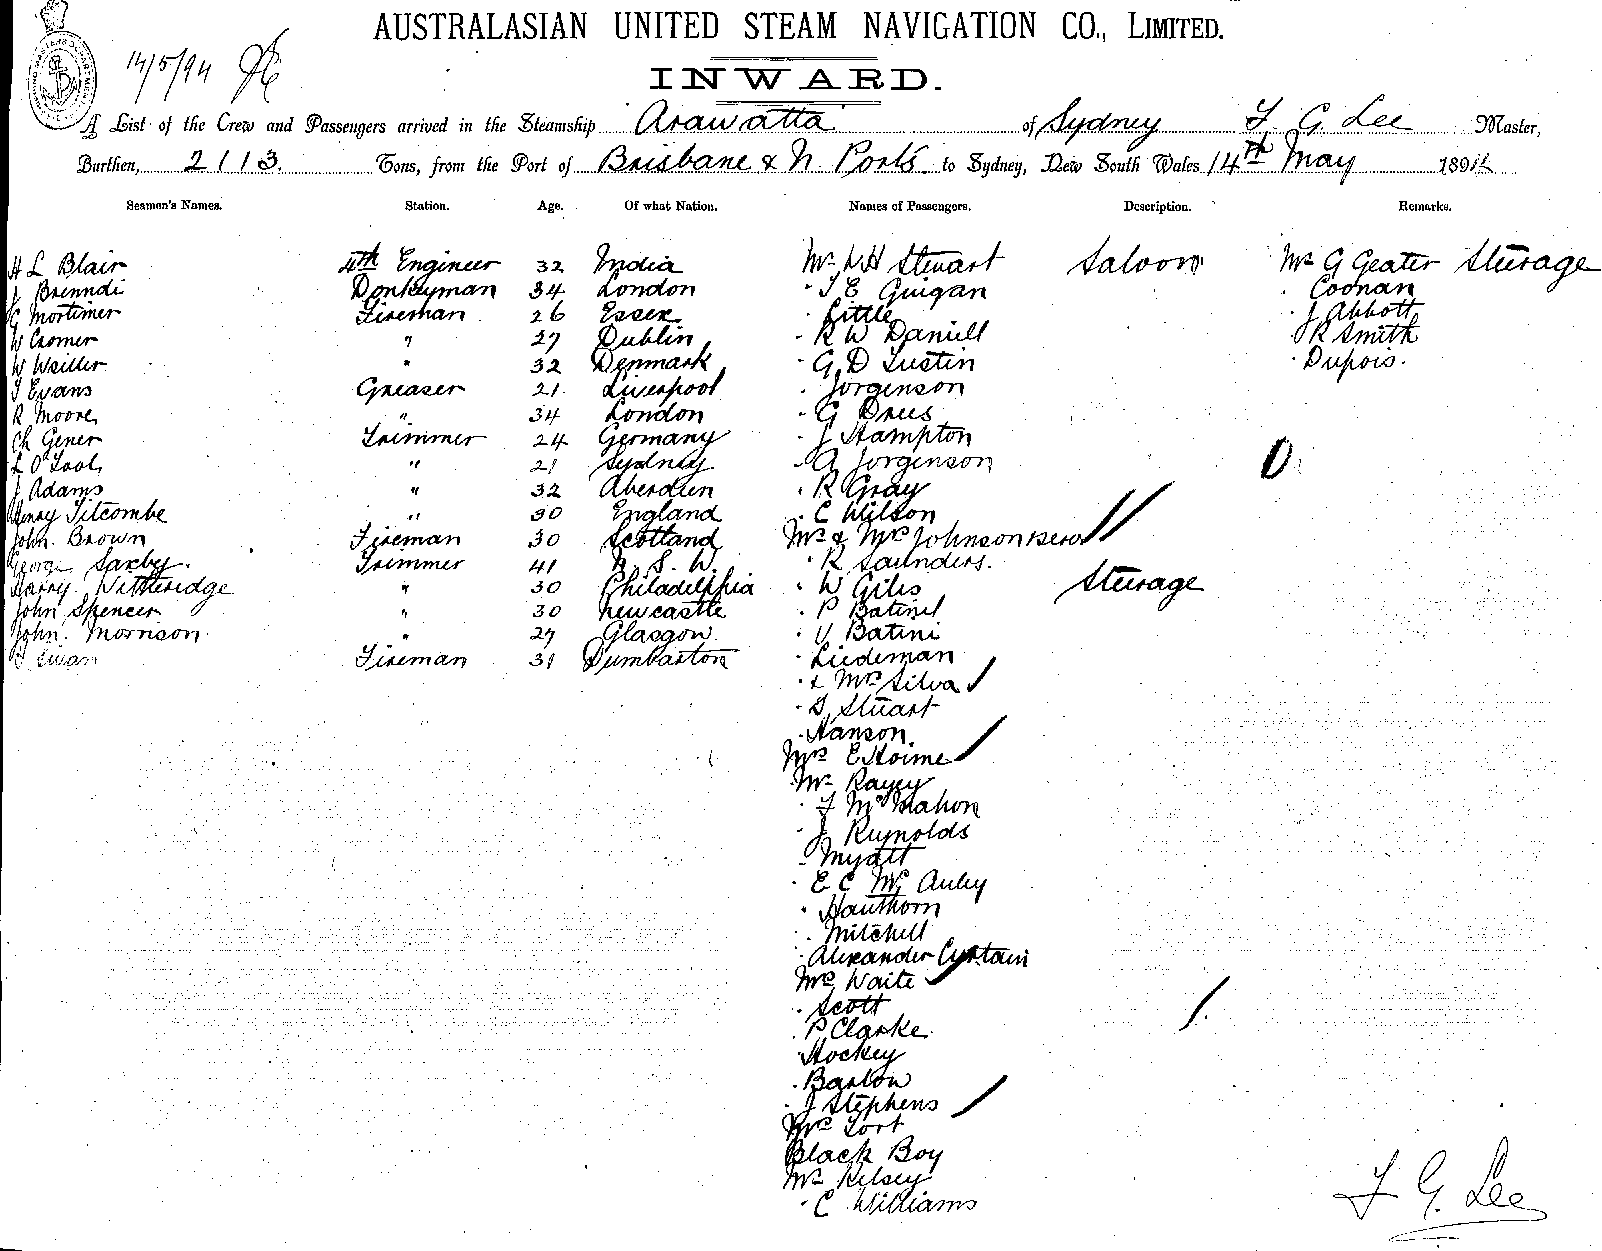 AUSTRALASIAN UNITED STEAM NAVIGATION CO., LIMITED.
14/5/94
INWARD.
A List of the Crew and Passengers arrived in the Steamship Arawatta of Sydney F. G. Lee Master,
Burthen, 2113. Tons, from the Port of Brisbane & N. Ports to Sydney, New South Wales 14th May 1894
Seamen's Names. Station. Age. Of what Nation. Names of Passengers. Description. Remarks.
H L Blair 4th Engineer 32 India Mr. Stewart Saloon Mr G Geater Steerage
Donkeyman 34 London " Guigan " Coonan
G Mortimer Fireman 26 Essex " Little " J Abbott
W Cromer " 27 Dublin " R W Daniell " R Smith
W " 32 Denmark " G D " Dupois.
Evans Greaser 21 Liverpool " Jorgenson
R Moore " 34 London " G
Gener Trimmer 24 Germany " J Hampton
" 21 Sydney " A Jorgenson
J Adams " 32 Aberdeen " R Gray
Henry Titcombe " 30 England " C Wilson
John Brown Fireman 30 Scotland Mr & Mrs Johnson
George Saxby. Trimmer 41 N. S. W. " R Saunders.
Harry Witheridge " 30 Philadelphia " W Giles Steerage
John Spencer " 30 Newcastle " P
John. Morrison " 27 Glasgow " V Batini
Swan Fireman 31 Dumbarton " Liedeman
" & Mrs Silva
" Stuart
" Hanson
Mrs E Hoime
Mr
" McMahon
" J Reynolds
" Myatt
" E C
" Hauthorn
" Mitchell
" Alexander Curtain
Mrs Waite
" Scott
" P Clarke
" Hockey
" Barlow
" J Stephens
Mrs
Black Boy
Mr Kelsey
" C Williams
F G. Lee